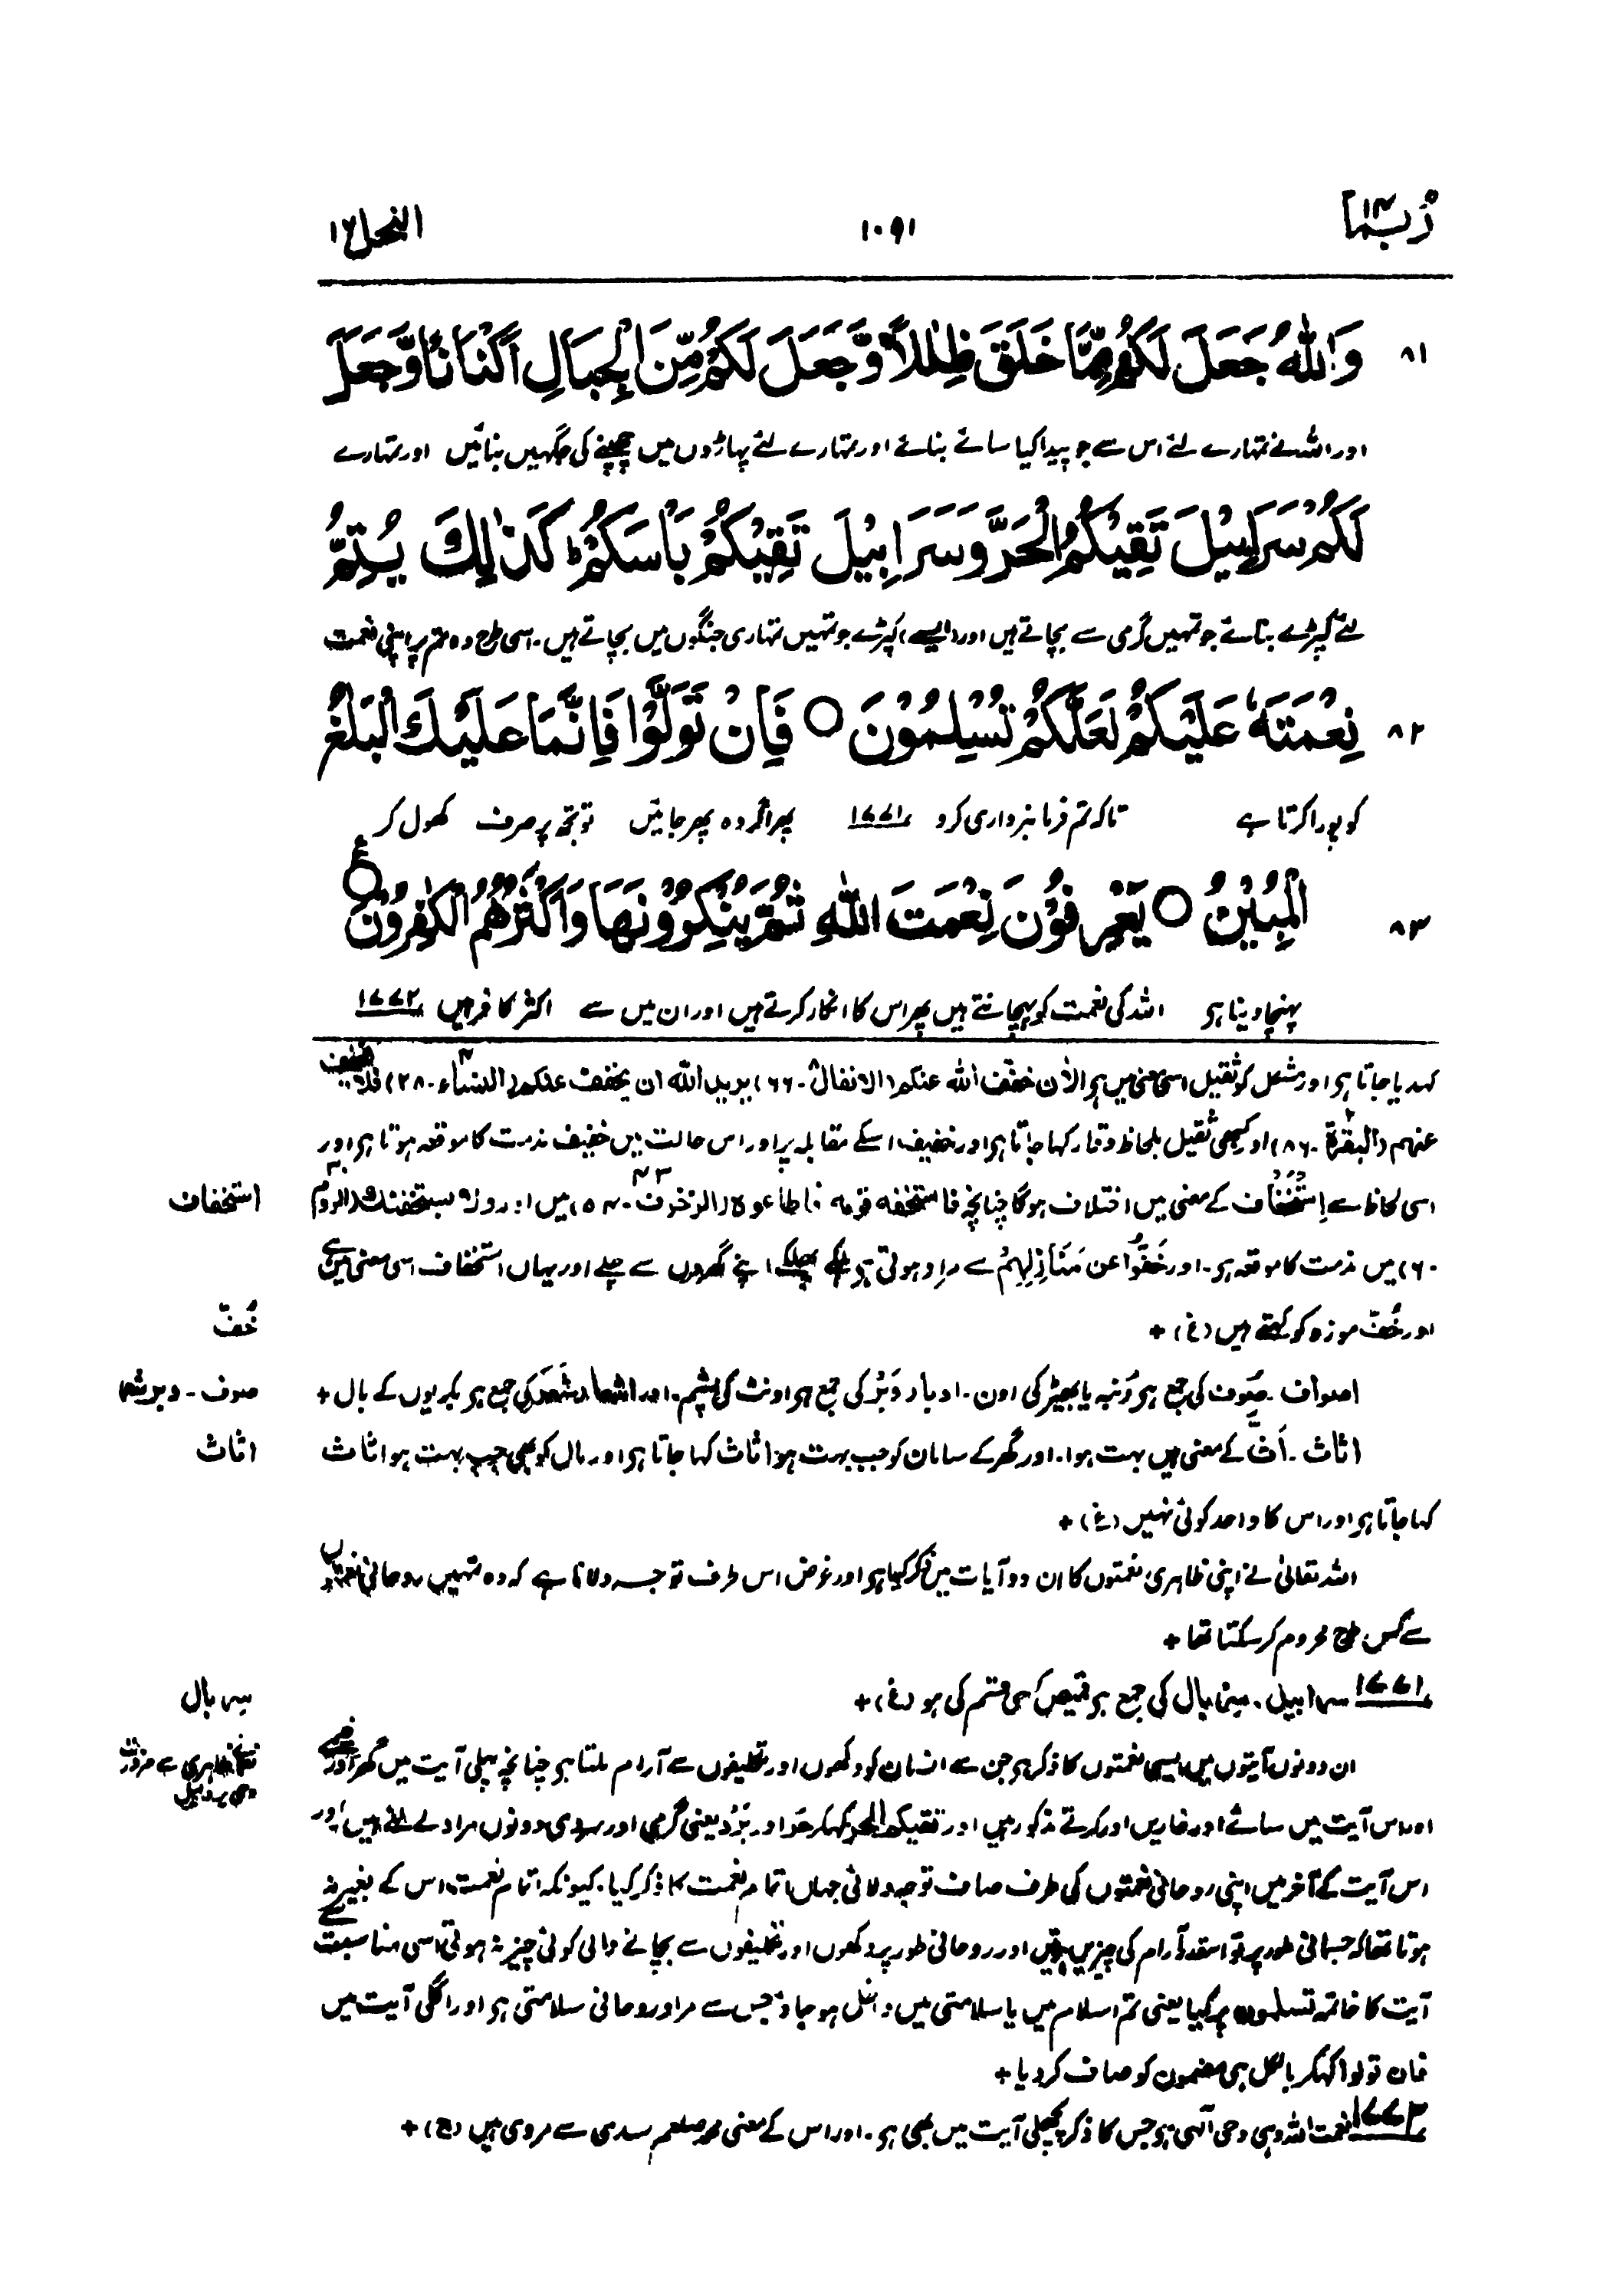 ربما ١٤
١٠٩١
النحل ١٦
٨١
وَاللّٰهُ جَعَلَ لَكُمْ مِّمَّا خَلَقَ ظِلٰلًا وَّجَعَلَ لَكُمْ مِّنَ الْجِبَالِ اَكْنَانًا وَّجَعَلَ
اور اللہ نے تمہارے لئے اس سے جو پیدا کیا سائے بنائے اور تمہارے لئے پہاڑوں میں چھپنے کی جگہیں بنائیں اور تمہارے
لَكُمْ سَرَابِيْلَ تَقِيْكُمُ الْحَرَّ وَسَرَابِيْلَ تَقِيْكُمْ بَاْسَكُمْ ؕ كَذٰلِكَ يُتِمُّ
لئے کپڑے بنائے جو تمہیں گرمی سے بچاتے ہیں اور (ایسے) کپڑے جو تمہیں تمہاری جنگوں میں بچاتے ہیں۔ اسی طرح وہ تم پر اپنی نعمت
٨٢
نِعْمَتَهٗ عَلَيْكُمْ لَعَلَّكُمْ تُسْلِمُوْنَ ○ فَاِنْ تَوَلَّوْا فَاِنَّمَا عَلَيْكَ الْبَلٰغُ
کو پورا کرتا ہے تاکہ تم فرمانبرداری کرو ١٧٧١ پھر اگر وہ پھر جائیں تو تجھ پر صرف کھول کر
٨٣
الْمُبِيْنُ ○ يَعْرِفُوْنَ نِعْمَتَ اللّٰهِ ثُمَّ يُنْكِرُوْنَهَا وَاَكْثَرُهُمُ الْكٰفِرُوْنَ ○ ع
پہنچا دینا ہو اللہ کی نعمت کو پہچانتے ہیں پھر اس کا انکار کرتے ہیں اور ان میں سے اکثر کافر ہیں ١٧٧٢
کہدیا جاتا ہو اور مشکل کو ثقیل اسی معنی میں ہو الاٰن خفف الله عنکم (الانفال ٨۔٦٦) یرید الله ان یخفف عنکم (النساء ٤۔٢٨) فلا یخفف
عنہم (البقرۃ ٢۔٨٦) اور کبھی ثقیل بلحاظ وقار کہا جاتا ہو اور خفیف اسکے مقابلہ پر اور اس حالت میں خفیف مذمت کا موقعہ ہوتا ہو اور
اسی لحاظ سے اِسْتِخْفَاف کے معنی میں اختلاف ہوگا چنانچہ فاستخفه قومه فاطاعوه (الزخرف ٤٣۔٥٤) میں اور ولا یستخفنك (الروم ٣٠
۔٦٠) میں مذمت کا موقعہ ہو۔ اور خَفُّوا عن مَنَازِلِهِمْ سے مراد ہوتی ہو ہلکے پھلکے اپنے گھروں سے چلے اور یہاں استخفاف اسی معنی میں ہے
استخفاف
اور خُفّ موزہ کو کہتے ہیں (غ) +
خُفّ
اصواف۔ صُوف کی جمع ہو دُنبہ یا بھیڑ کی اون۔ اوبار وَبَرٌ کی جمع ہو اونٹ کی پشم۔ اور اشعار شَعَر کی جمع ہو بکریوں کے بال +
صوف۔ وبر شعر
اثاث۔ اَثَّ کے معنی ہیں بہت ہوا۔ اور گھر کے سامان کو جب بہت ہو اثاث کہا جاتا ہو اور مال کو بھی جب بہت ہو اثاث
اثاث
کہا جاتا ہو اور اس کا واحد کوئی نہیں (غ) +
اللہ تعالیٰ نے اپنی ظاہری نعمتوں کا ان دو آیات میں ذکر کیا ہو اور غرض اس طرف توجہ دلانا ہے کہ وہ تمہیں روحانی نعمتوں
سے کس طرح محروم کر سکتا تھا +
١٧٧١ سرابیل۔ سربال کی جمع ہو قمیص کسی قسم کی ہو (غ) +
سربال
ان دونوں آیتوں میں ایسی نعمتوں کا ذکر ہو جن سے انسان کو دکھوں اور تکلیفوں سے آرام ملتا ہو چنانچہ پہلی آیت میں گھر اور خیمے
ظاہری سے ضرورت
وحی پر دلیل
اور اس آیت میں سائے اور غاریں اور کرتے مذکور ہیں اور تقیکم الحر کہکر حَر اور بَرْد یعنی گرمی اور سردی دونوں مراد لے لئے ہیں اور
اس آیت کے آخر میں اپنی روحانی نعمتوں کی طرف صاف توجہ دلائی جہاں اتمام نعمت کا ذکر کیا۔ کیونکہ اتمام نعمت اس کے بغیر نہ
ہوتا تھا کہ جسمانی طور پر تو اسقدر آرام کی چیزیں ہوتیں اور روحانی طور پر دکھوں اور تکلیفوں سے بچانے والی کوئی چیز نہ ہوتی اسی مناسبت سے
آیت کا خاتمہ تسلمون پر کیا یعنی تم اسلام میں یا سلامتی میں داخل ہو جاؤ جس سے مراد روحانی سلامتی ہو اور اگلی آیت میں
فان تولوا کہکر بالکل ہی مضمون کو صاف کر دیا +
١٧٧٢ نعمت اللہ وہی وحی الٰہی ہو جس کا ذکر پچھلی آیت میں بھی ہو۔ اور اس کے معنی محمد صلعم سدی سے مروی ہیں (ج) +